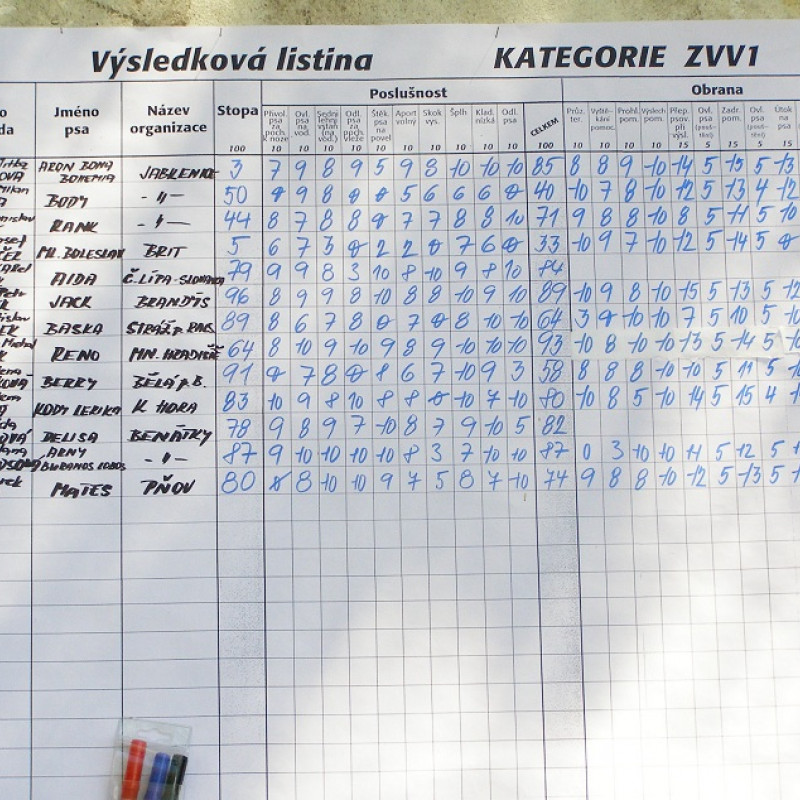 Výsledková listina KATEGORIE ZVV1
Poslušnost Obrana
Jméno psa Název organizace Stopa Přivol. psa za poch. k noze Ovl. psa na vod. Odl. psa za poch. vleže Štěk. psa na povel Aport volný Skok vys. Šplh Klad. nízká Odl. psa CELKEM Průz. ter. Vyště- kání pomoc. Prohl. pom. Výslech pom. Přep. psov. při výsl. Ovl. psa Zadr. pom. Ovl. psa Útok na
100 10 10 10 10 10 10 10 10 10 10 100 10 10 10 10 15 5 15 5
ARON BONA BOHEMIA JABLENKE 3 7 9 8 9 5 9 8 10 10 10 85 8 8 9 10 14 5 15 5 13
BODY -"- 50 0 9 8 0 0 5 6 6 6 0 40 10 7 8 10 12 5 13 4 12
RANK -"- 44 8 7 8 8 0 7 7 8 8 10 71 9 8 8 10 8 5 11 5 10
ML. BOLESLAV BRIT 5 6 7 3 0 2 2 0 7 6 0 33 10 9 7 10 12 5 14 5 0
AIDA Č. LÍPA - SLOVANKA 79 9 9 8 3 10 8 10 9 8 10 84
JACK BRANDÝS 96 8 9 9 8 10 8 8 10 9 10 89 10 9 8 10 15 5 13 5 12
BASKA STRÁŽ P. RAL 89 8 6 7 8 0 7 0 8 10 10 64 3 0 10 10 7 5 10 5
RENO MN. HRADIŠTĚ 64 8 10 9 10 9 8 9 10 10 10 93 10 8 10 10 13 5 14 5
BERRY BĚLÁ p. B. 91 0 7 8 0 8 6 7 10 9 3 58 8 8 8 10 10 5 11 5
KODY LERIKA K HORA 83 10 9 8 10 8 8 0 10 7 10 80 10 8 5 10 14 5 15 4
DELISA BENÁTKY 78 9 8 9 7 10 8 7 9 10 5 82
ARNY BURANOS LOBOS -"- 87 9 10 10 10 10 8 3 7 10 10 87 0 3 10 10 11 5 12 5
MATES PŇOV 80 8 8 10 10 9 7 5 8 7 10 74 9 8 8 10 12 5 13 5